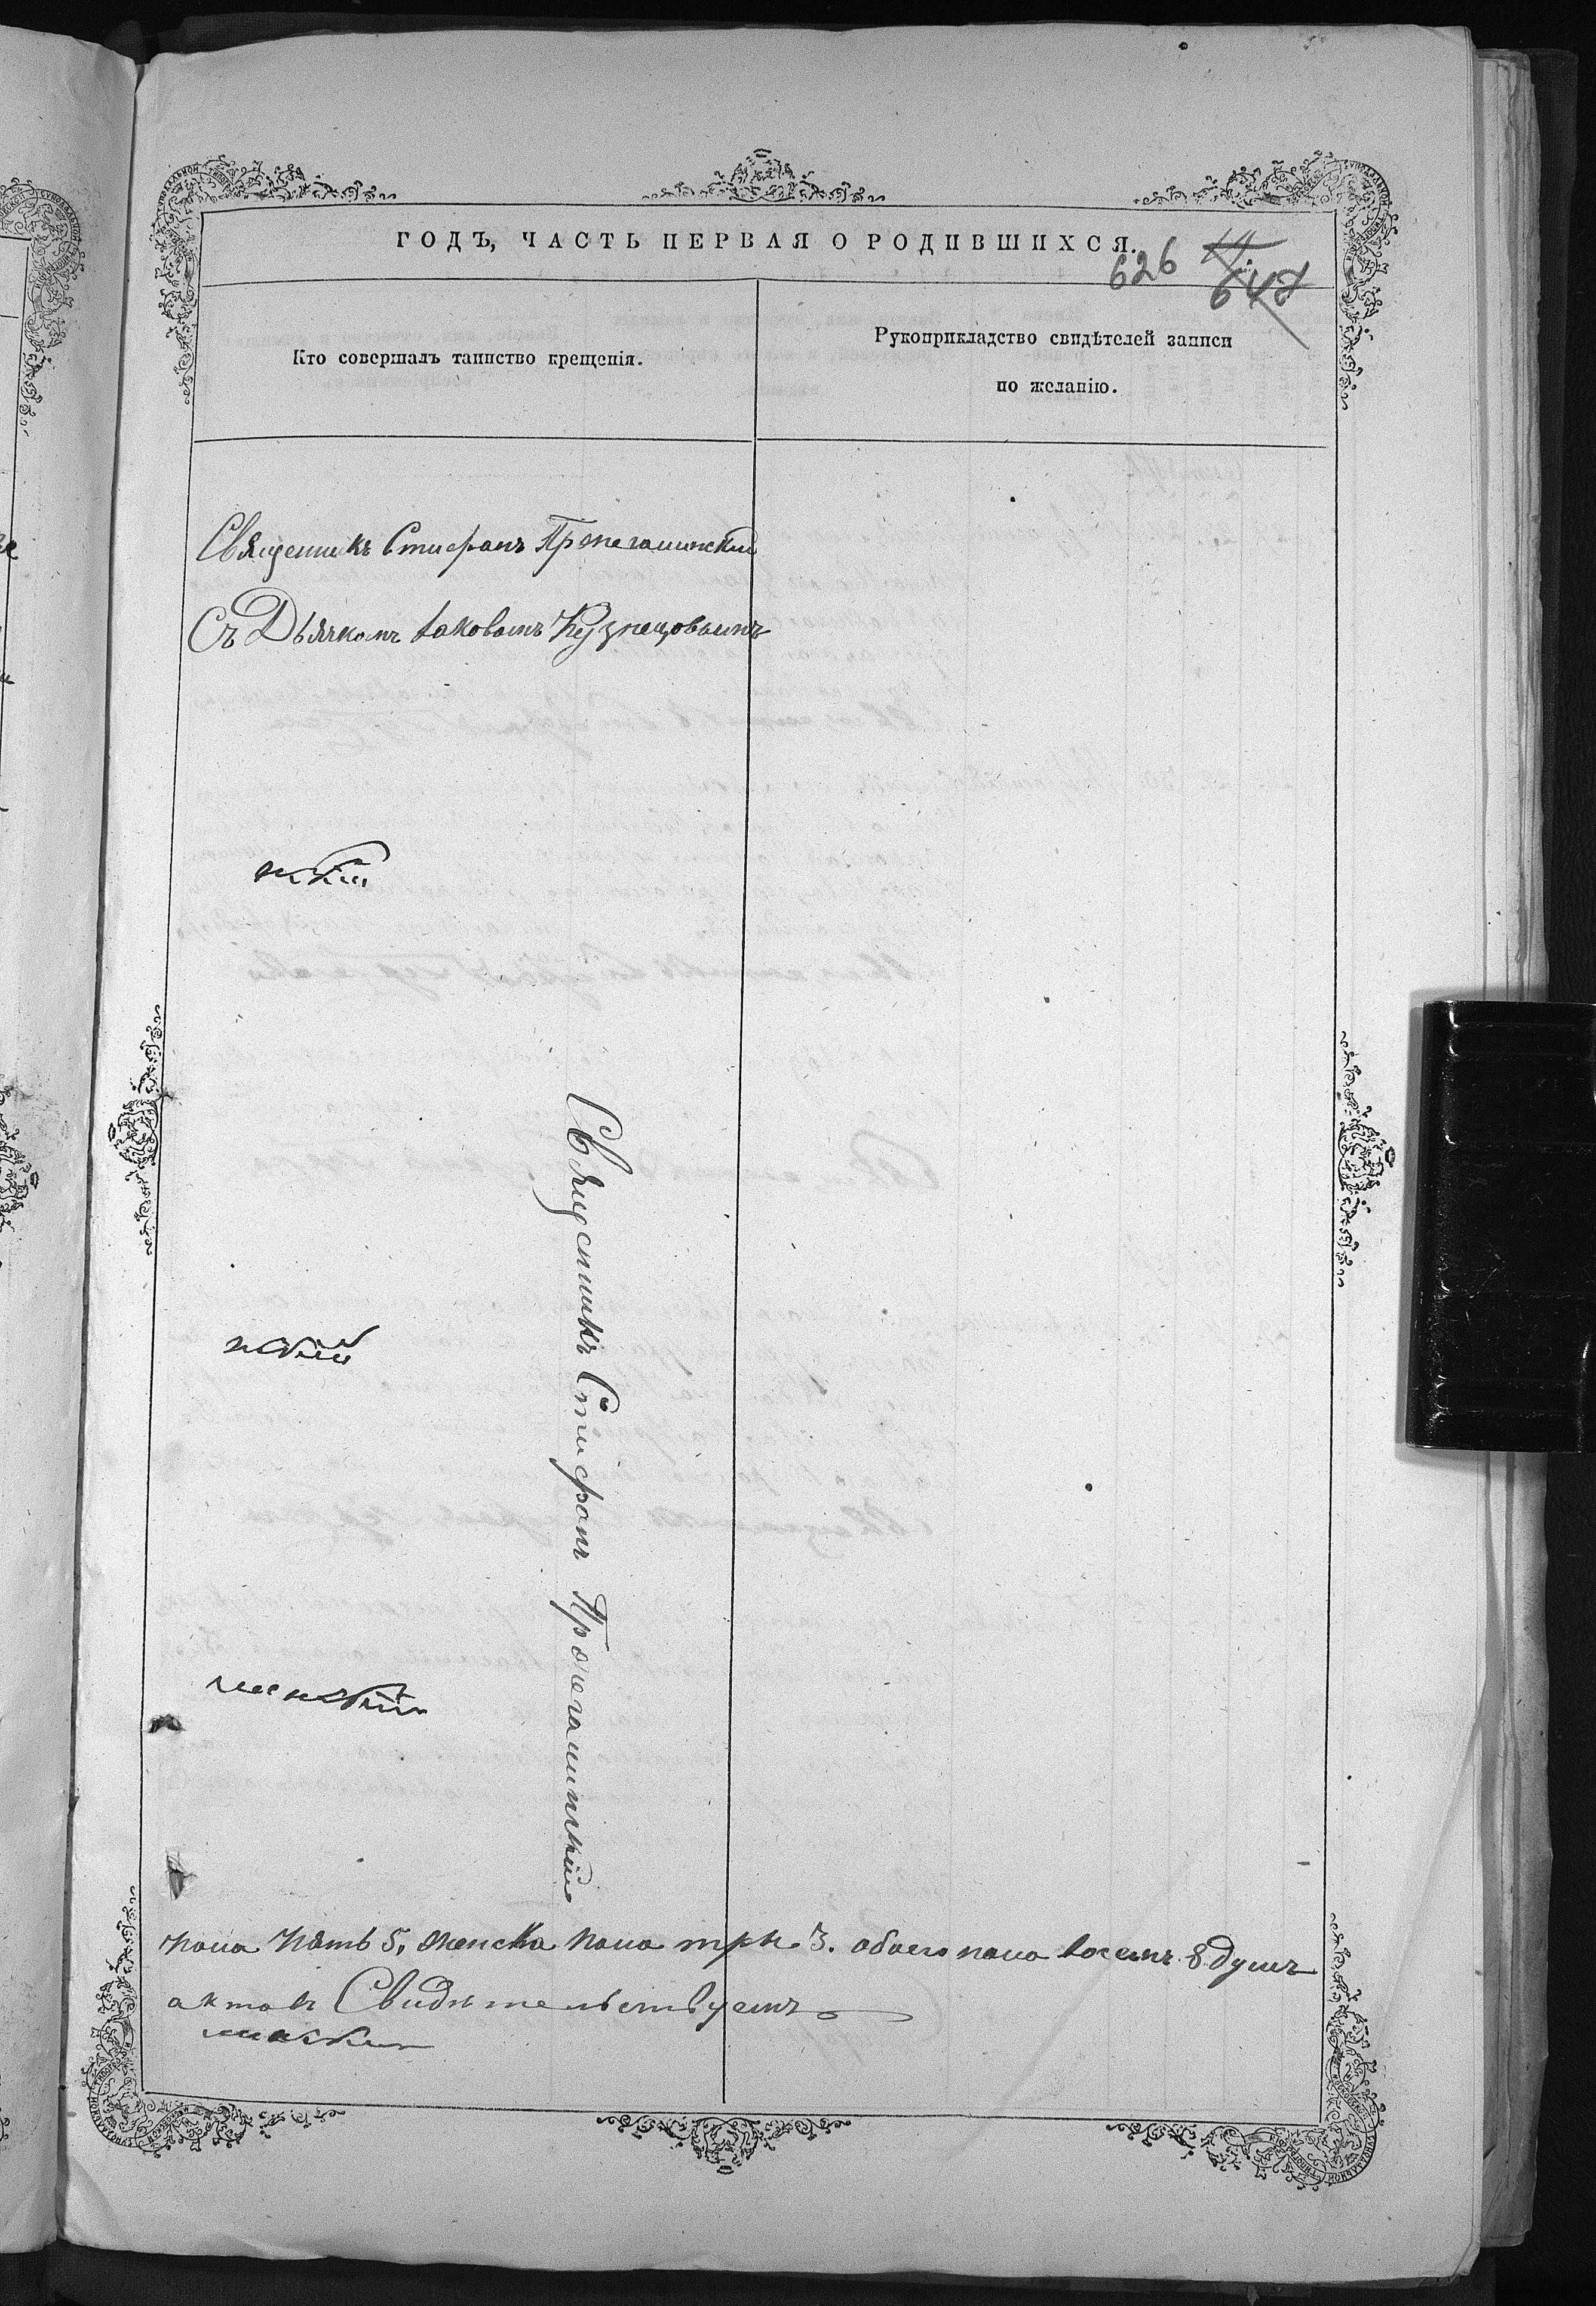 ГОДЪ, ЧАСТЬ ПЕРВАЯ О РОДИВШИХСЯ.
626
648
Кто совершалъ таинство крещенія.
Рукоприкладство свидѣтелей записи
по желанію.
Священникъ Стефанъ
Съ Дьячкомъ Іаковомъ Кузнецовымъ
Священникъ Стефанъ
пола пять 5, женска пола три 3. обоего пола восемь 8 душъ
актовъ Свидѣтельствуемъ